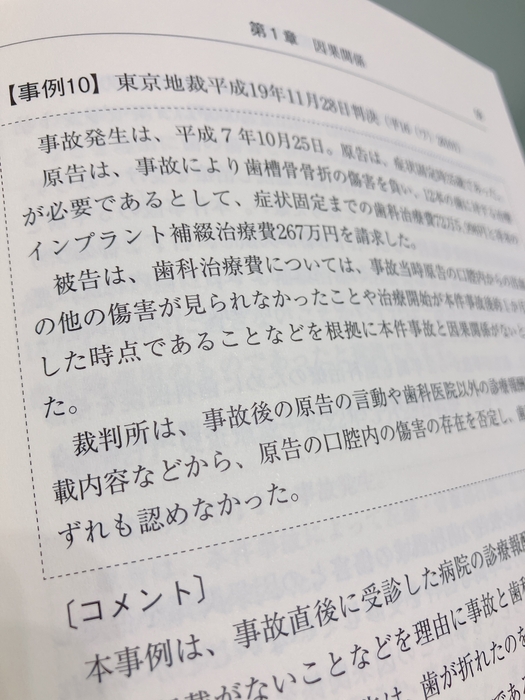 第1章 因果関係
【事例10】 東京地裁平成19年11月28日判決
事故発生は、平成7年10月25日。原告は、症状固定時35歳であった。
原告は、事故により歯槽骨骨折の傷害を負い、12本の歯に対する治療
が必要であるとして、症状固定までの歯科治療費72万5,990円と将来の
インプラント補綴治療費267万円を請求した。
被告は、歯科治療費については、事故当時原告の口腔内からの出血
の他の傷害が見られなかったことや治療開始が本件事故後約1か月
した時点であることなどを根拠に本件事故と因果関係がないと
た。
裁判所は、事故後の原告の言動や歯科医院以外の診療報酬
載内容などから、原告の口腔内の傷害の存在を否定し、
ずれも認めなかった。
〔コメント〕
本事例は、事故直後に受診した病院の診療報酬
載がないことなどを理由に事故と歯
は、歯が折れたのを